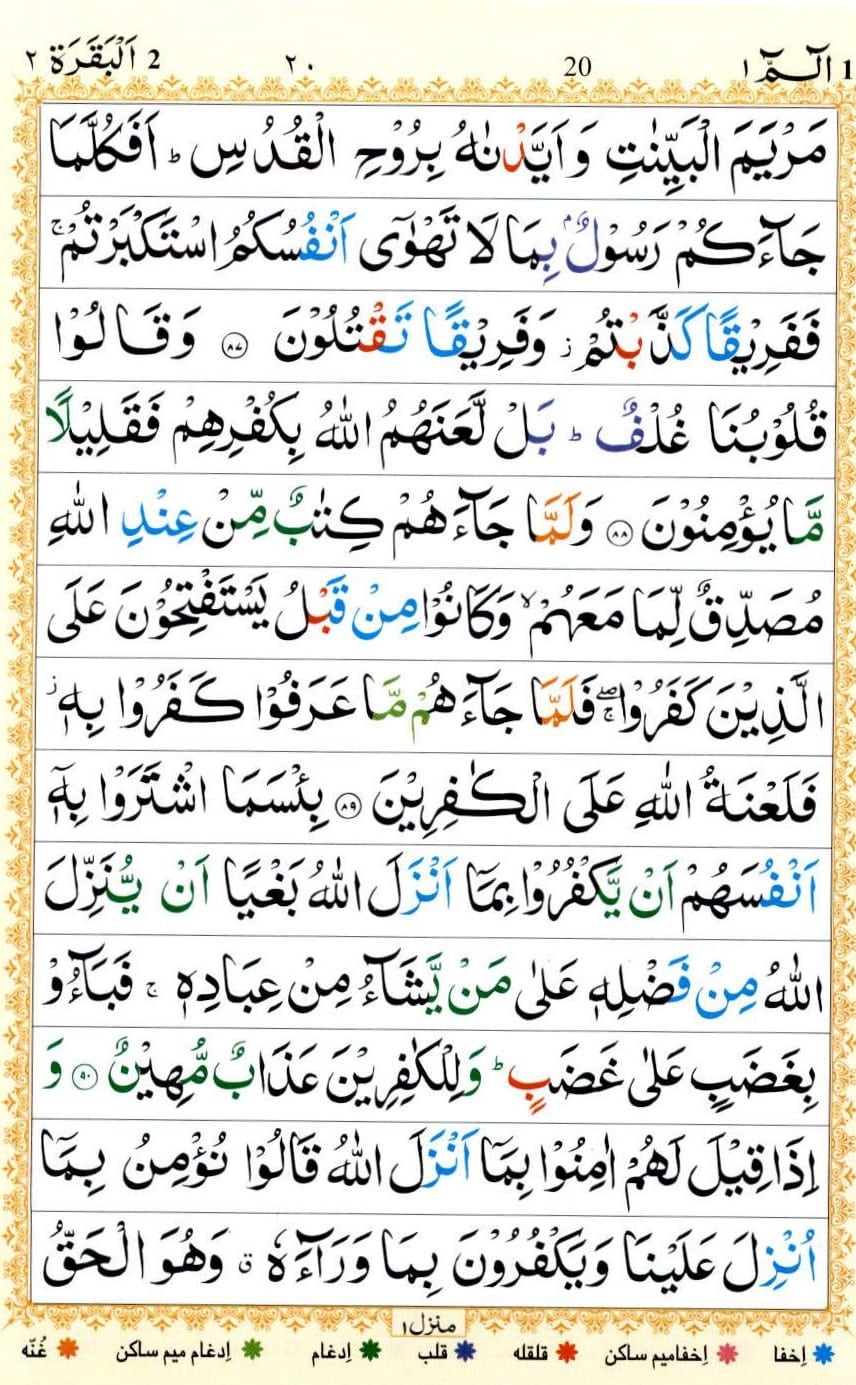 1 الٓمّٓ ١ 20 ٢٠ 2 اَلْبَقَرَة ٢
مَرْيَمَ الْبَيِّنٰتِ وَاَيَّدْنٰهُ بِرُوْحِ الْقُدُسِ ؕ اَفَكُلَّمَا
جَآءَكُمْ رَسُوْلٌۢ بِمَا لَا تَهْوٰٓى اَنْفُسُكُمُ اسْتَكْبَرْتُمْ ۚ
فَفَرِيْقًا كَذَّبْتُمْ ؗ وَفَرِيْقًا تَقْتُلُوْنَ ﴿۸۷﴾ وَقَالُوْا
قُلُوْبُنَا غُلْفٌ ؕ بَلْ لَّعَنَهُمُ اللّٰهُ بِكُفْرِهِمْ فَقَلِيْلًا
مَّا يُؤْمِنُوْنَ ﴿۸۸﴾ وَلَمَّا جَآءَهُمْ كِتٰبٌ مِّنْ عِنْدِ اللّٰهِ
مُصَدِّقٌ لِّمَا مَعَهُمْ ۙ وَكَانُوْا مِنْ قَبْلُ يَسْتَفْتِحُوْنَ عَلَى
الَّذِيْنَ كَفَرُوْا ۖۚ فَلَمَّا جَآءَهُمْ مَّا عَرَفُوْا كَفَرُوْا بِهٖ ؗ
فَلَعْنَةُ اللّٰهِ عَلَى الْكٰفِرِيْنَ ﴿۸۹﴾ بِئْسَمَا اشْتَرَوْا بِهٖٓ
اَنْفُسَهُمْ اَنْ يَّكْفُرُوْا بِمَآ اَنْزَلَ اللّٰهُ بَغْيًا اَنْ يُّنَزِّلَ
اللّٰهُ مِنْ فَضْلِهٖ عَلٰى مَنْ يَّشَآءُ مِنْ عِبَادِهٖ ۚ فَبَآءُوْ
بِغَضَبٍ عَلٰى غَضَبٍ ؕ وَلِلْكٰفِرِيْنَ عَذَابٌ مُّهِيْنٌ ﴿۹۰﴾ وَ
اِذَا قِيْلَ لَهُمْ اٰمِنُوْا بِمَآ اَنْزَلَ اللّٰهُ قَالُوْا نُؤْمِنُ بِمَآ
اُنْزِلَ عَلَيْنَا وَيَكْفُرُوْنَ بِمَا وَرَآءَهٗ ۗ وَهُوَ الْحَقُّ
منزل ١
اِخفا اِخفامیم ساکن قلقله قلب اِدغام اِدغام میم ساکن غُنّه